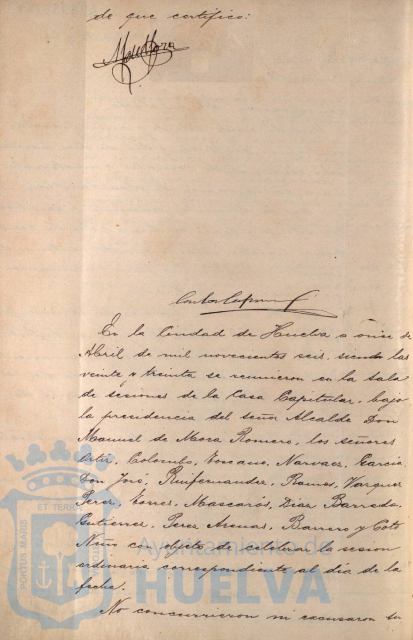 de que certifico:
En la Ciudad de Huelva a once de
Abril de mil novecientos seis, siendo las
veinte y treinta se reunieron en la Sala
de sesiones de la Casa Capitular, bajo
la presidencia del señor Alcalde Don
Manuel de Mora Romero, los señores
Colombo, Toscano, Narvaez, García,
San José, Ruifernandez, Ramos, Vazquez
Perez, Torres, Mascarós, Diaz Barreda,
Gutierrez, Perez Arenas, Barrero y Coto
Niño con objeto de celebrar la sesion
ordinaria correspondiente al día de la
fecha.
No concurrieron ni excusaron su
PORTUS MARIS ET TERRÆ
Ayuntamiento de
HUELVA